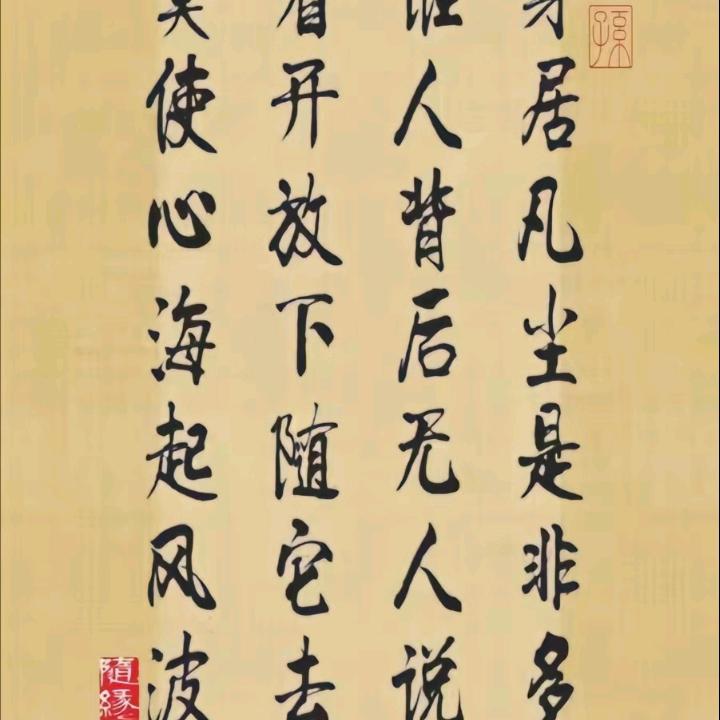 身居凡尘是非多
谁人背后无人说
看开放下随它去
莫使心海起风波
孫
隨緣